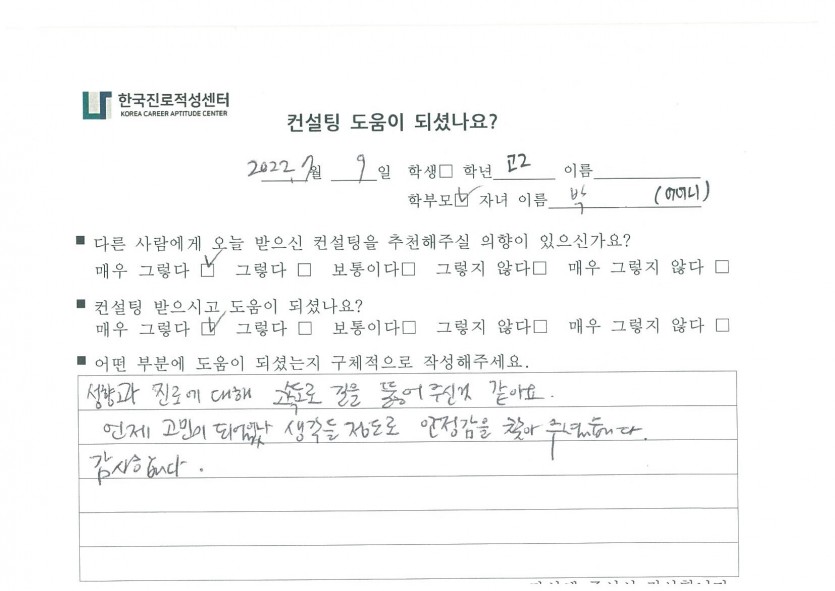 한국진로적성센터
KOREA CAREER APTITUDE CENTER
컨설팅 도움이 되셨나요?
2022. 7월 9일 학생□ 학년 고2 이름
학부모☑ 자녀 이름 박 (어머니)
■ 다른 사람에게 오늘 받으신 컨설팅을 추천해주실 의향이 있으신가요?
매우 그렇다 ☑ 그렇다 □ 보통이다□ 그렇지 않다□ 매우 그렇지 않다 □
■ 컨설팅 받으시고 도움이 되셨나요?
매우 그렇다 ☑ 그렇다 □ 보통이다□ 그렇지 않다□ 매우 그렇지 않다 □
■ 어떤 부분에 도움이 되셨는지 구체적으로 작성해주세요.
성향과 진로에 대해 고속도로 길을 뚫어 주신것 같아요.
언제 고민이 되었었나 생각들 정도로 안정감을 찾아 주셨습니다.
감사합니다.